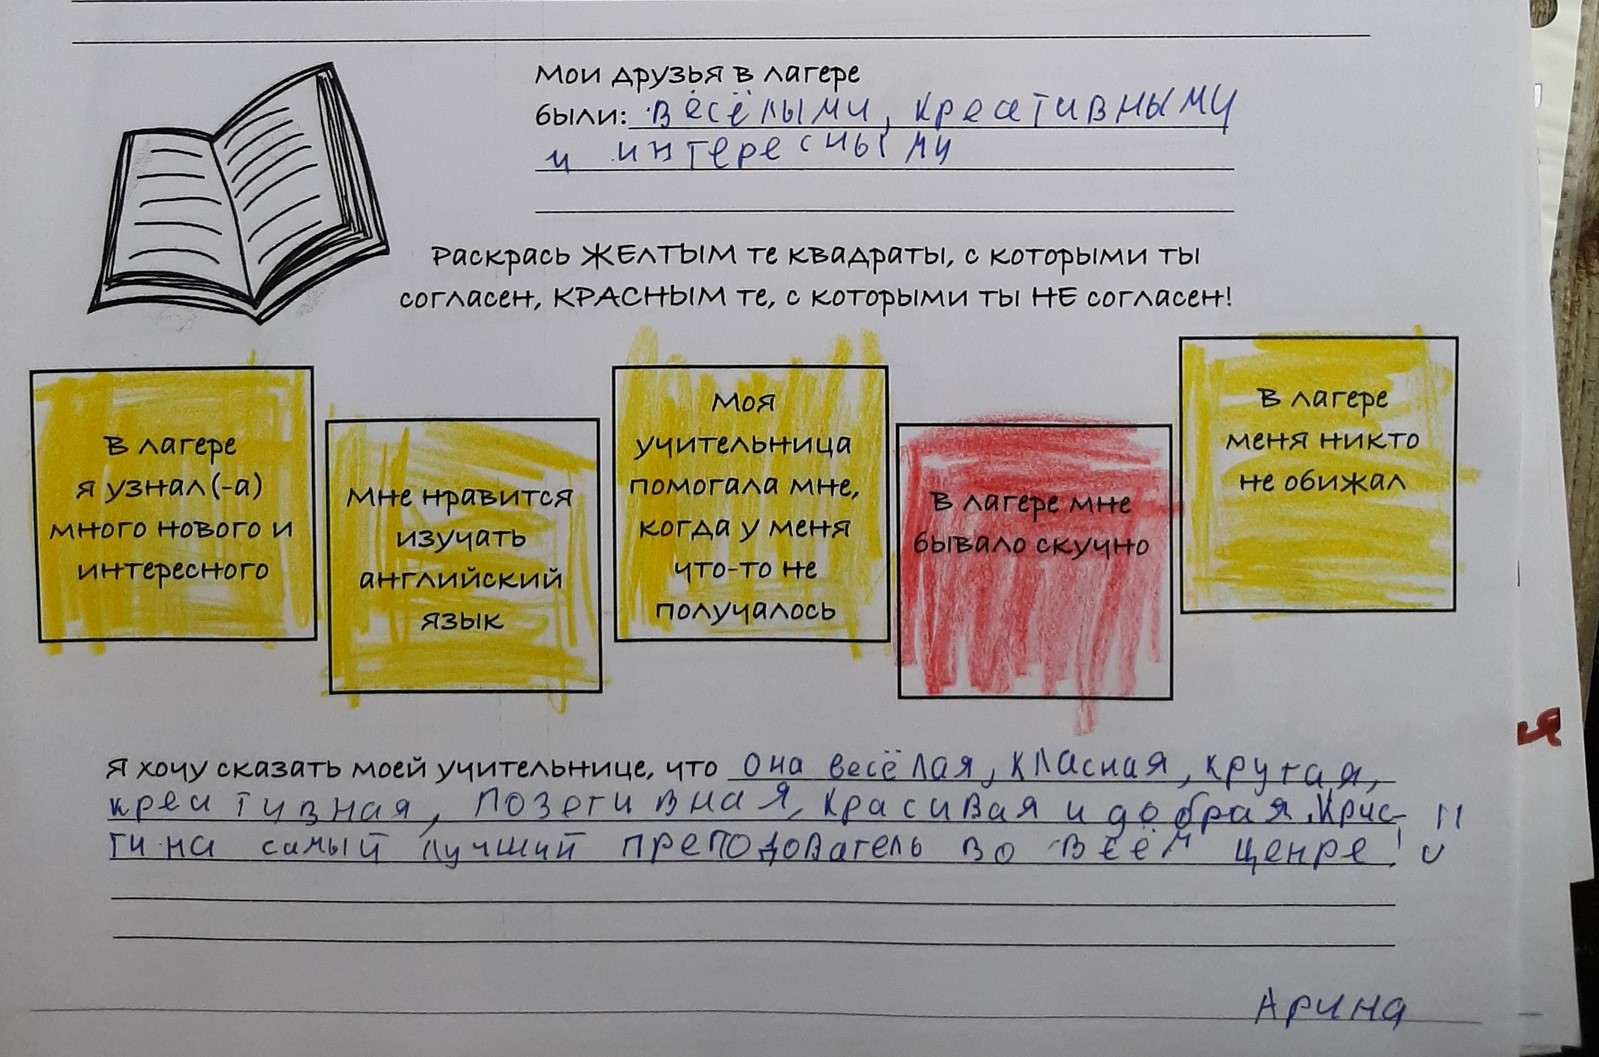 Мои друзья в лагере
были: весёлыми, креативными
и интересными
Раскрась ЖЕЛТЫМ те квадраты, с которыми ты
согласен, КРАСНЫМ те, с которыми ты НЕ согласен!
В лагере
я узнал(-а)
много нового и
интересного
Мне нравится
изучать
английский
язык
Моя
учительница
помогала мне,
когда у меня
что-то не
получалось
В лагере мне
бывало скучно
В лагере
меня никто
не обижал
Я хочу сказать моей учительнице, что она весёлая, класная, крутая,
креативная, позетивная, красивая и добрая. Крис-
тина самый лучший преподователь во всём ценре!
Арина